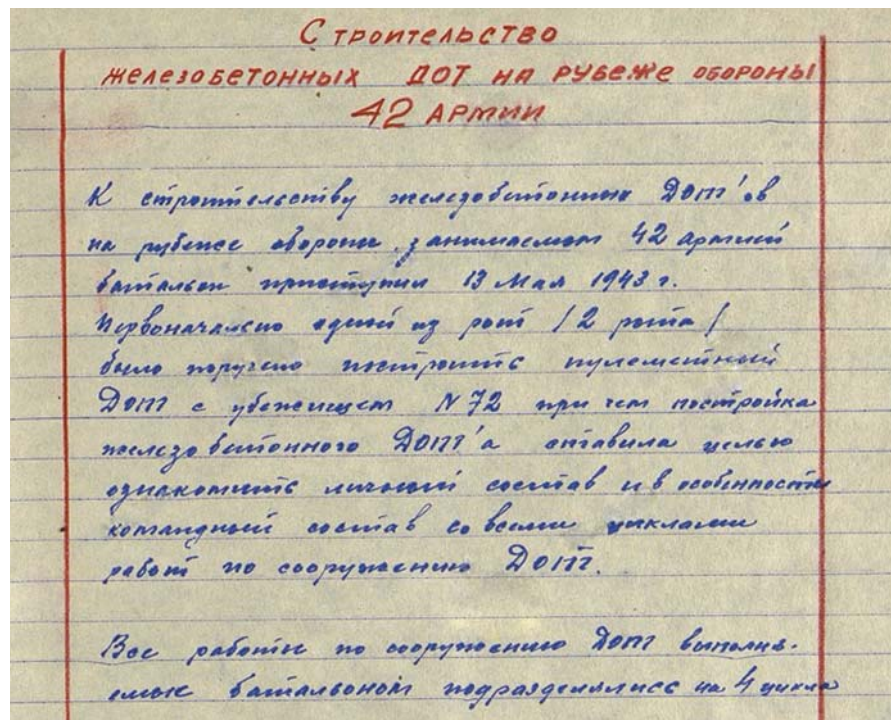 Строительство
железобетонных ДОТ на рубеже обороны
42 армии
К строительству железобетонных Дот'ов
на рубеже обороны занимаемом 42 армией
батальон приступил 13 Мая 1943 г.
Первоначально одной из рот /2 рота/
было поручено построить пулеметный
Дот с убежищем N 72 при чем постройка
железобетонного Дот'а ставила целью
ознакомить личный состав и в особенности
командный состав со всеми циклами
работ по сооружению Дот.
Все работы по сооружению Дот выполня-
емые батальоном подразделялись на 4 цикла